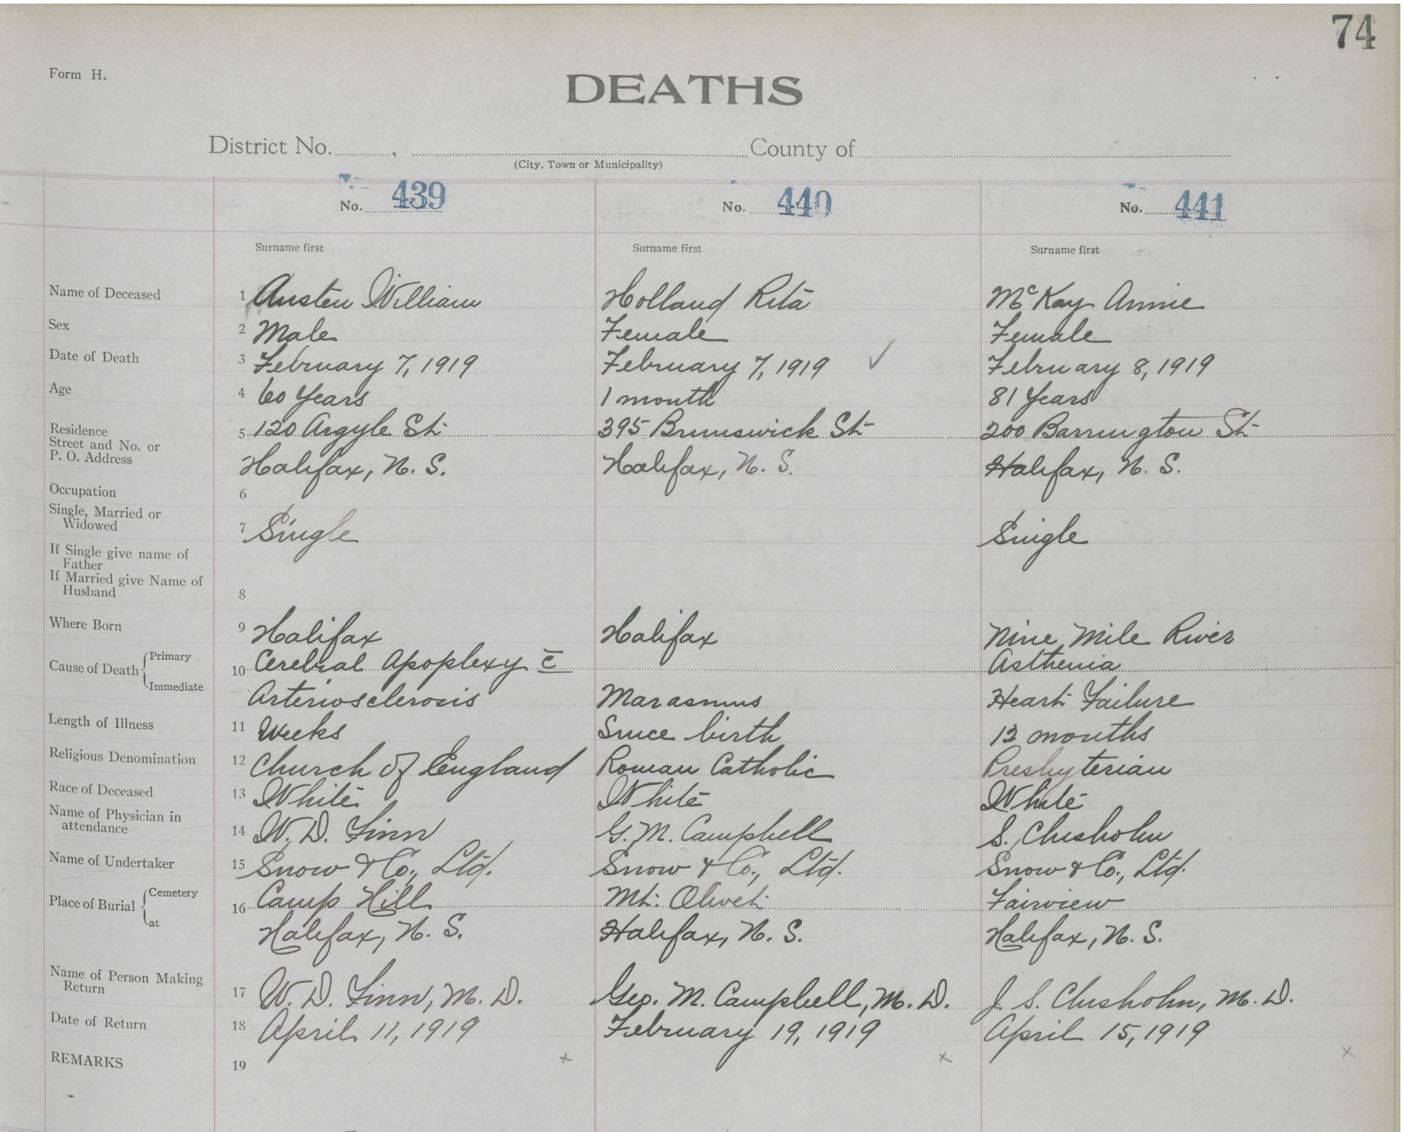 74
Form H.
DEATHS
District No. , County of
(City, Town or Municipality)
No. 439 No. 440 No. 441
Surname first Surname first Surname first
Name of Deceased 1 Austen William Holland Rita McKay Annie
Sex 2 Male Female Female
Date of Death 3 February 7, 1919 February 7, 1919 ✓ February 8, 1919
Age 4 60 Years 1 month 81 Years
Residence
Street and No. or 5 120 Argyle St 395 Brunswick St 200 Barrington St
P. O. Address Halifax, N. S. Halifax, N. S. Halifax, N. S.
Occupation 6
Single, Married or
Widowed 7 Single Single
If Single give name of
Father
If Married give Name of
Husband 8
Where Born 9 Halifax Halifax Nine Mile River
Cause of Death Primary 10 Cerebral Apoplexy c̄ Asthenia
Immediate Arteriosclerosis Marasmus Heart Failure
Length of Illness 11 Weeks Since birth 12 months
Religious Denomination 12 Church of England Roman Catholic Presbyterian
Race of Deceased 13 White White White
Name of Physician in
attendance 14 W. D. Finn G. M. Campbell S. Chisholm
Name of Undertaker 15 Snow & Co., Ltd. Snow & Co., Ltd. Snow & Co., Ltd.
Place of Burial Cemetery 16 Camp Hill Mt. Olivet Fairview
at Halifax, N. S. Halifax, N. S. Halifax, N. S.
Name of Person Making
Return 17 W. D. Finn, M. D. Geo. M. Campbell, M. D. J. S. Chisholm, M. D.
Date of Return 18 April 11, 1919 February 19, 1919 April 15, 1919
REMARKS 19 x x x